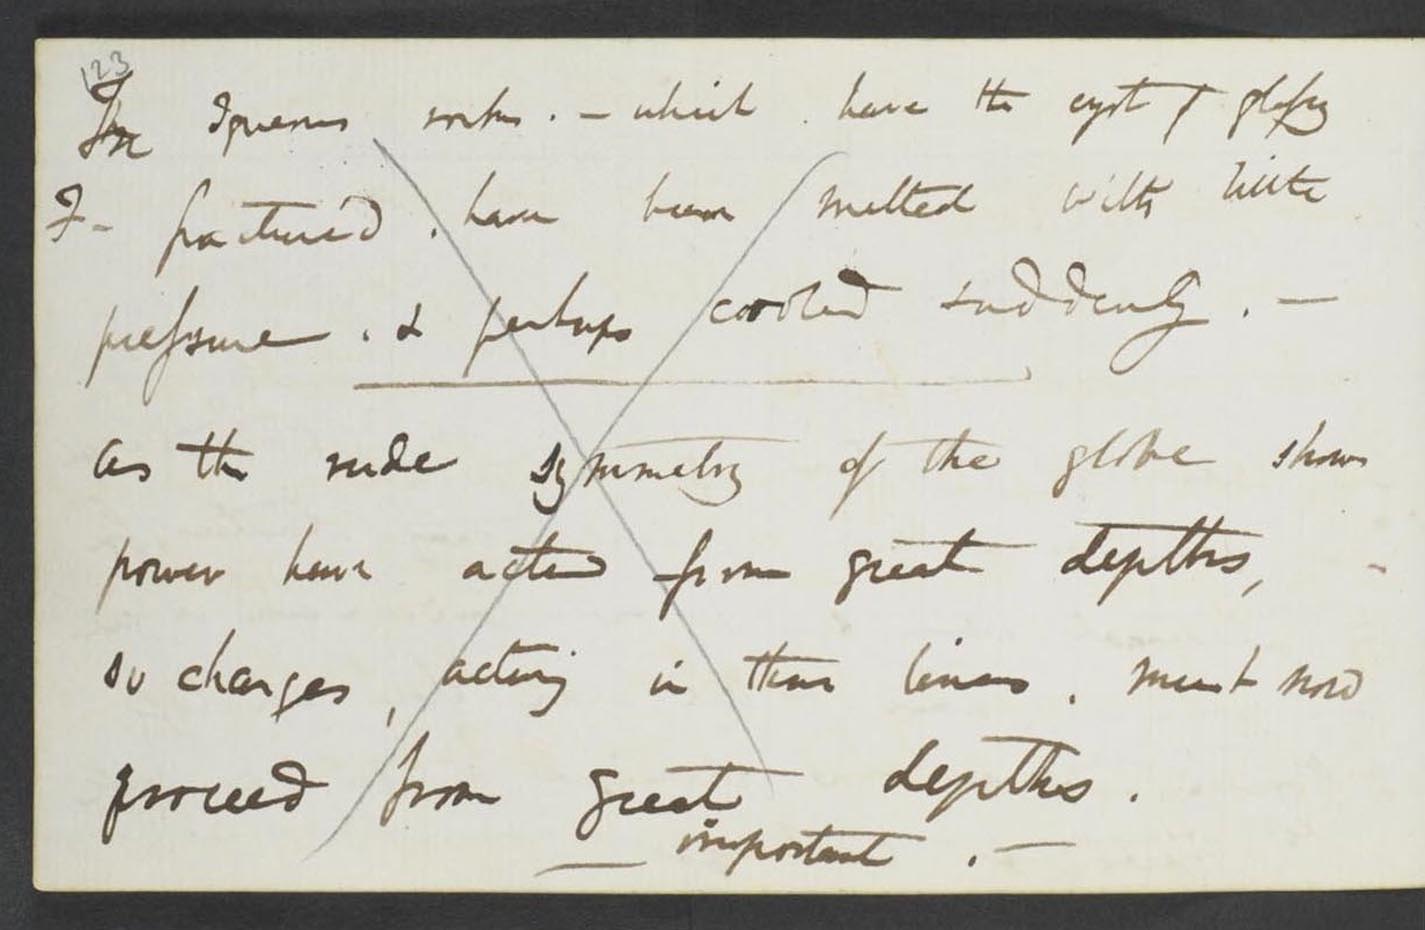 123
The Igneous rocks. — which have the cryst of glassy
F— fractured. have been melted with little
pressure. & perhaps cooled suddenly. —
as the rude symmetry of the globe shows
power have acted from great depths,
so changes, acting in those lines. must now
proceed from great depths.
— important. —